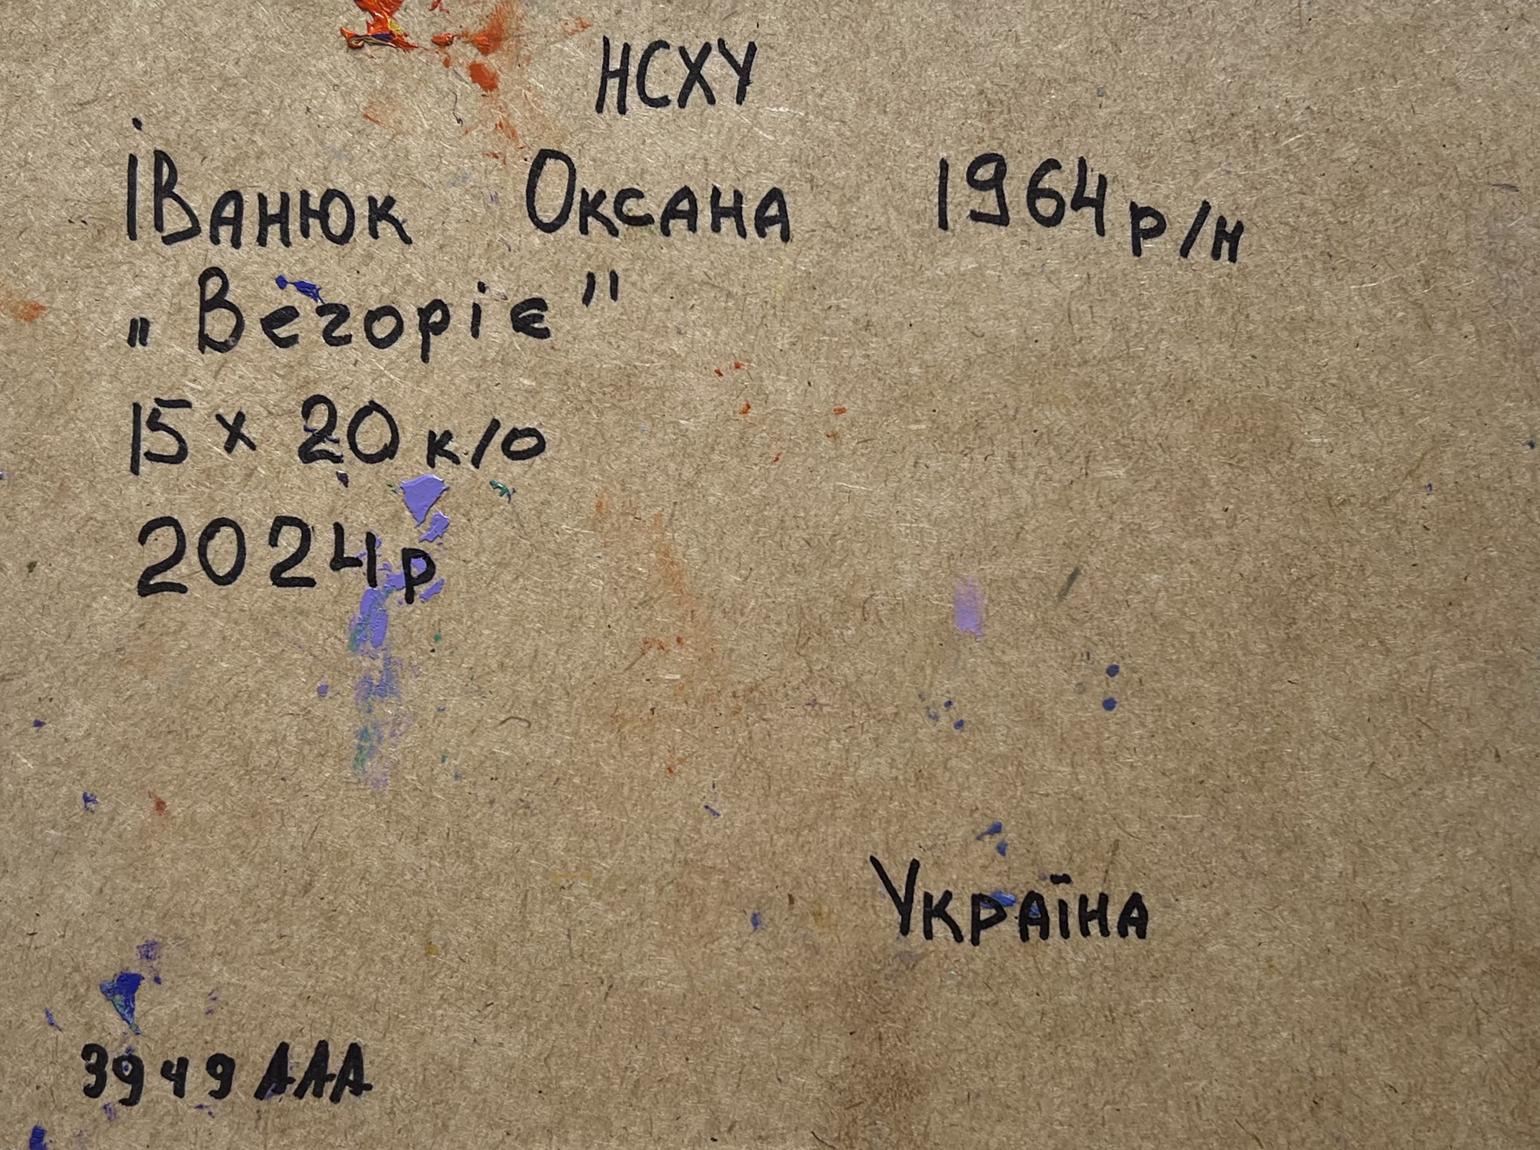 НСХУ
Іванюк Оксана 1964 р/н
„Вегоріє"
15 х 20 к/о
2024р
Україна
3949 ААА